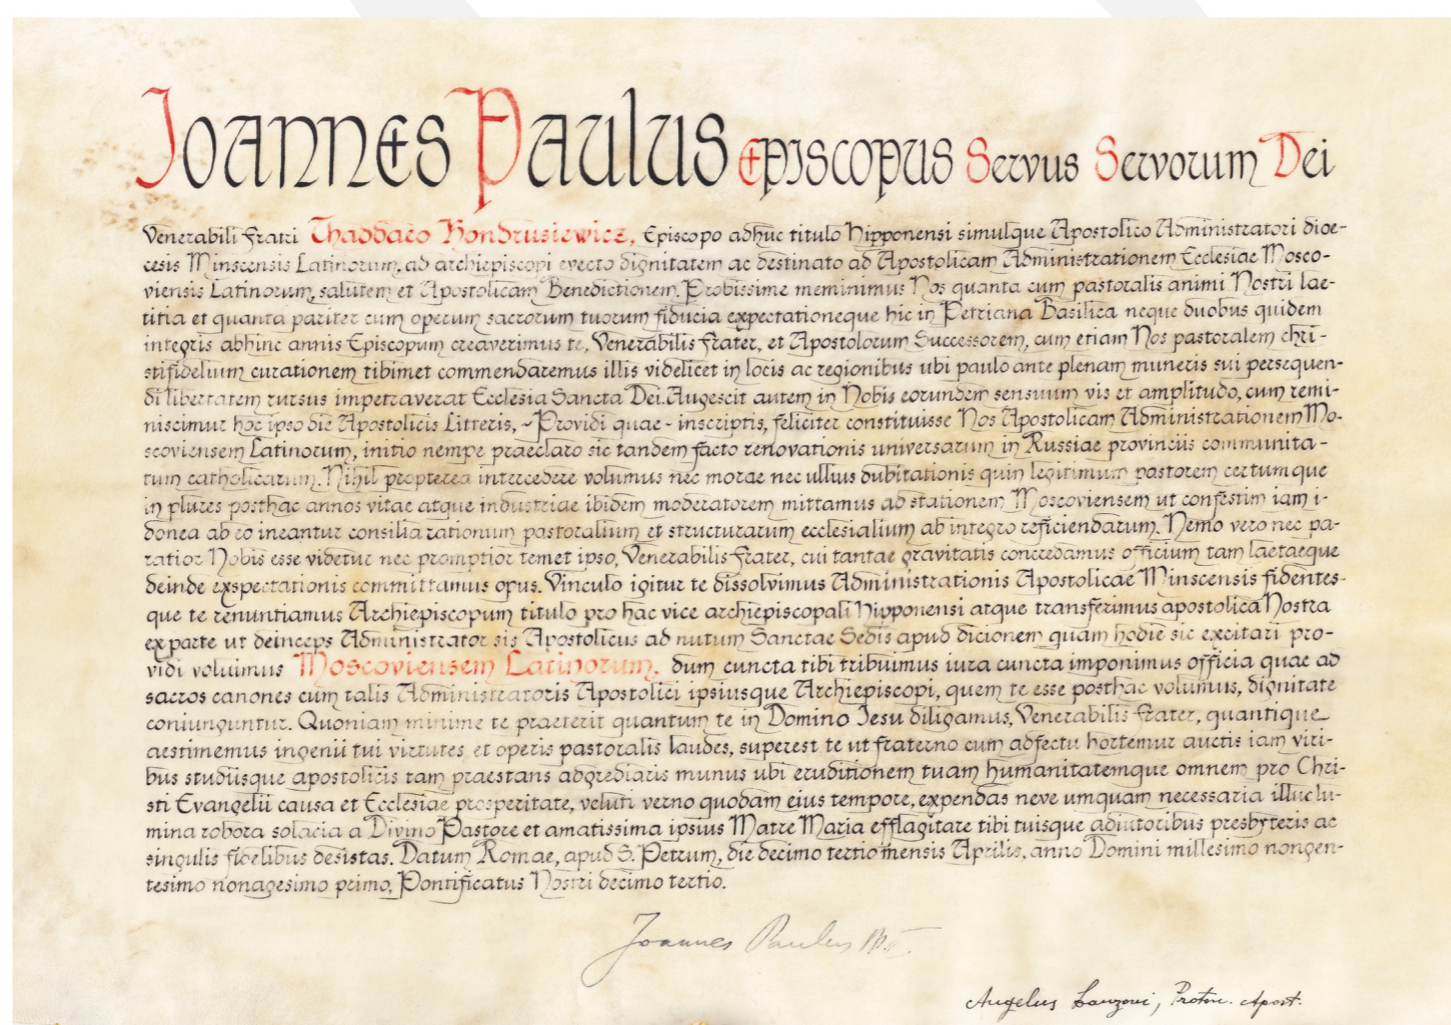 Joannes Paulus Episcopus Servus Servorum Dei
Venerabili Fratri Thaddaeo Kondrusiewicz, Episcopo adhuc titulo Hipponensi simulque Apostolico Administratori dioe-
cesis Minscensis Latinorum, ad archiepiscopi evecto dignitatem ac destinato ad Apostolicam Administrationem Ecclesiae Mosco-
viensis Latinorum, salutem et Apostolicam Benedictionem. Probissime meminimus Nos quanta cum pastoralis animi Nostri lae-
titia et quanta pariter cum operum sacrorum tuorum fiducia expectationeque hic in Petriana Basilica neque duobus quidem
integris abhinc annis Episcopum creaverimus te, Venerabilis Frater, et Apostolorum Successorem, cum etiam Nos pastoralem chri-
stifidelium curationem tibimet commendaremus illis videlicet in locis ac regionibus ubi paulo ante plenam muneris sui persequen-
di libertatem rursus impetraverat Ecclesia Sancta Dei. Augescit autem in Nobis eorundem sensuum vis et amplitudo, cum remi-
niscimur hoc ipso die Apostolicis Litteris, ~ Providi quae - inscriptis, feliciter constituisse Nos Apostolicam Administrationem Mo-
scoviensem Latinorum, initio nempe praeclaro sic tandem facto renovationis universarum in Russiae provinciis communita-
tum catholicarum. Nihil propterea intercedere volumus nec morae nec ullius dubitationis quin legitimum pastorem certumque
in plures posthac annos vitae atque industriae ibidem moderatorem mittamus ad stationem Moscoviensem ut confestim iam i-
donea ab eo ineantur consilia rationum pastoralium et structurarum ecclesialium ab integro reficiendarum. Nemo vero nec pa-
ratior Nobis esse videtur nec promptior temet ipso, Venerabilis Frater, cui tantae gravitatis concredamus officium tam laetaeque
deinde exspectationis committamus opus. Vinculo igitur te dissolvimus Administrationis Apostolicae Minscensis fidentes-
que te renuntiamus Archiepiscopum titulo pro hac vice archiepiscopali Hipponensi atque transferimus apostolica Nostra
ex parte ut deinceps Administrator sis Apostolicus ad nutum Sanctae Sedis apud dicionem quam hodie sic excitari pro-
vidi voluimus Moscoviensem Latinorum, dum cuncta tibi tribuimus iura cuncta imponimus officia quae ad
sacros canones cum talis Administratoris Apostolici ipsiusque Archiepiscopi, quem te esse posthac volumus, dignitate
coniunguntur. Quoniam minime te praeterit quantum te in Domino Iesu diligamus, Venerabilis Frater, quantique
aestimemus ingenii tui virtutes et operis pastoralis laudes, superest te ut fraterno cum adfectu hortemur auctis iam viri-
bus studiisque apostolicis tam praestans adgrediaris munus ubi eruditionem tuam humanitatemque omnem pro Chri-
sti Evangelii causa et Ecclesiae prosperitate, veluti verno quodam eius tempore, expendas neve umquam necessaria illuc lu-
mina robora solacia a Divino Pastore et amatissima ipsius Matre Maria efflagitare tibi tuisque adiutoribus presbyteris ac
singulis fidelibus desistas. Datum Romae, apud S. Petrum, die decimo tertio mensis Aprilis, anno Domini millesimo nongen-
tesimo nonagesimo primo, Pontificatus Nostri decimo tertio.
Joannes Paulus
Angelus Lanzoni, Proton. Apost.